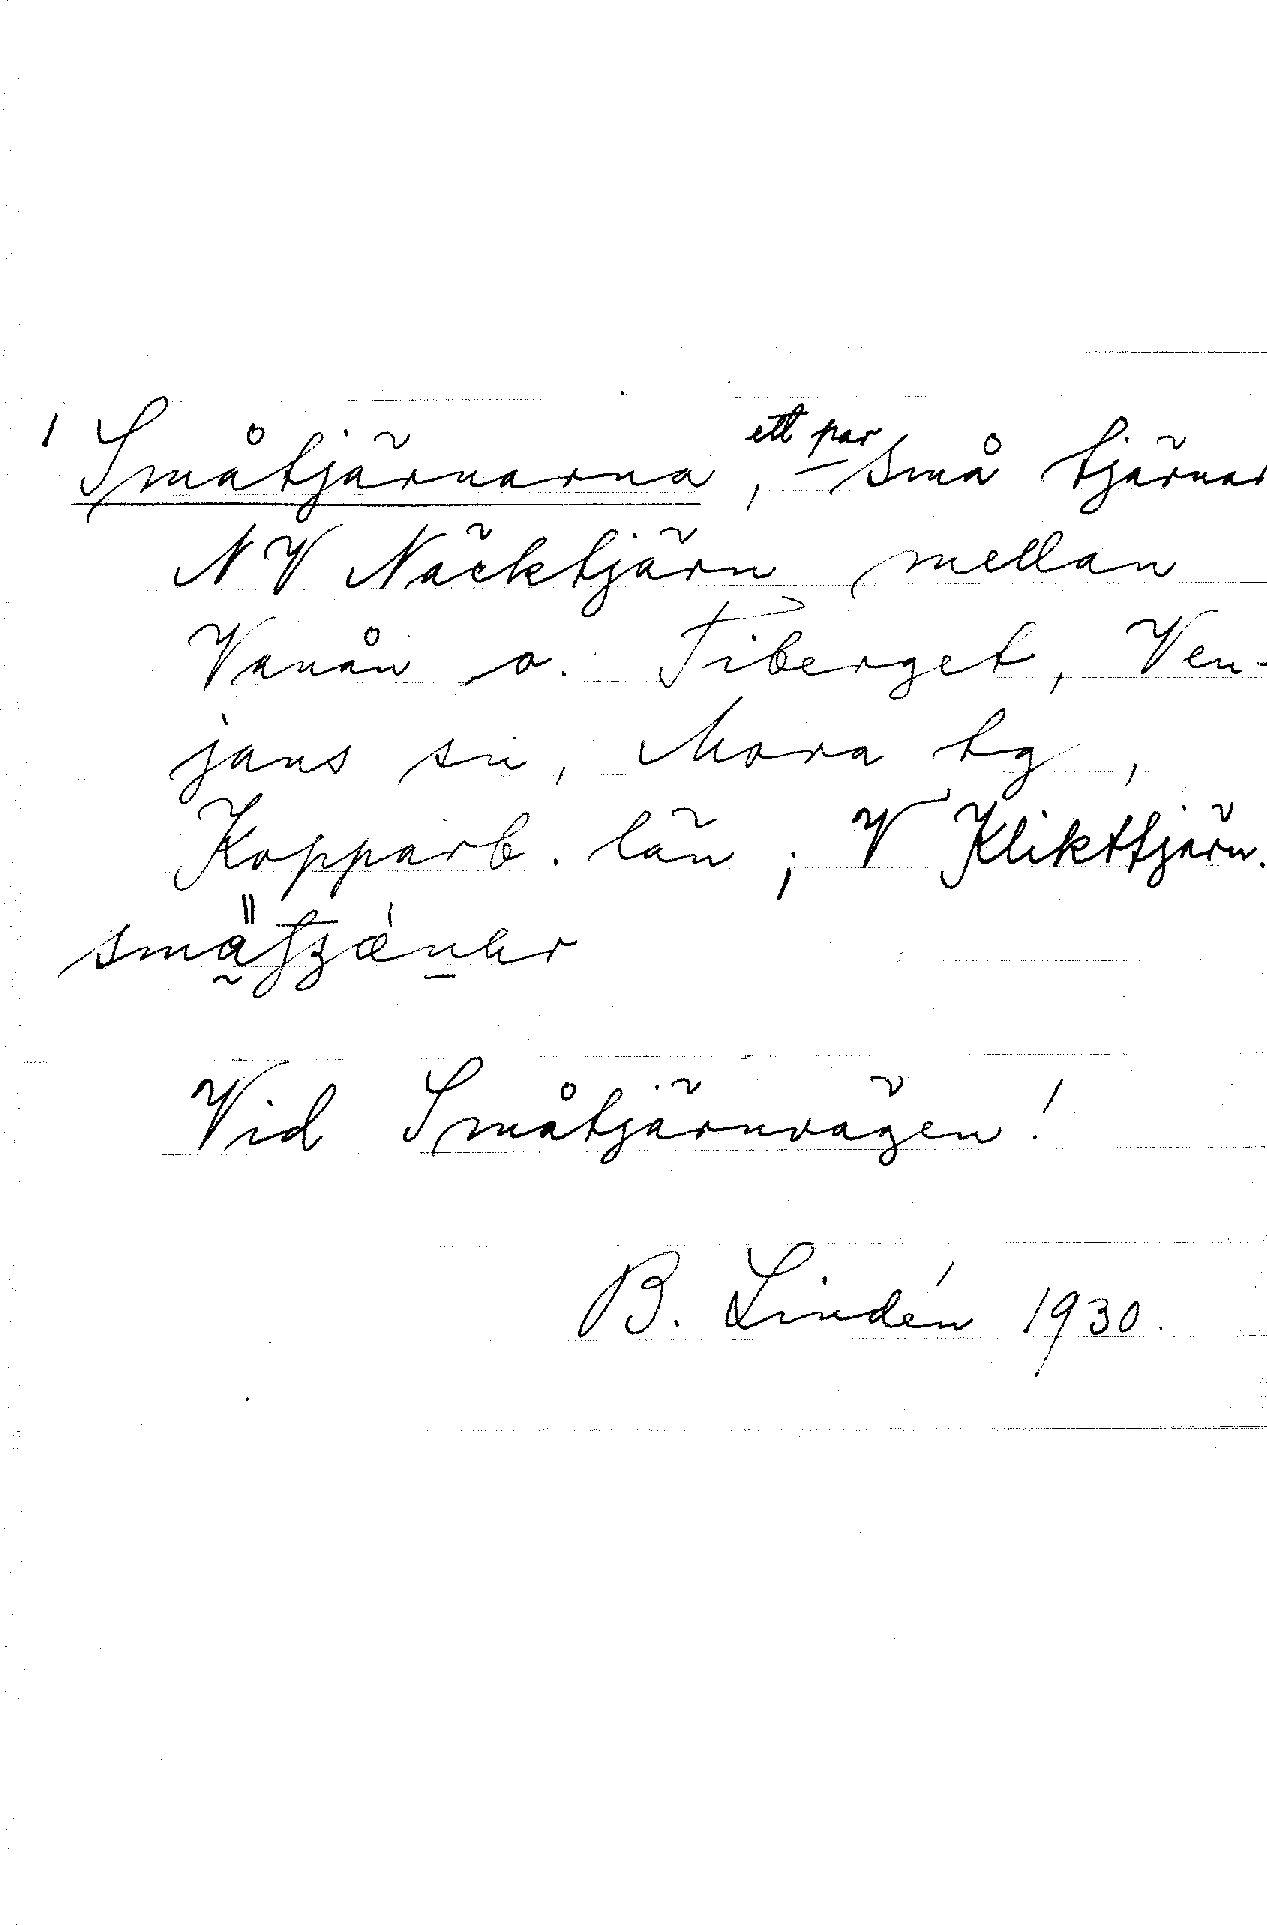 ' Småtjärnarna, ett par små tjärnar
NV Näcktjärn mellan
Vanån o. Tiberget, Ven-
jans sn, Mora tg,
Kopparb. län; V Klikttjärn.
Vid Småtjärnvägen!
B. Lindén 1930.